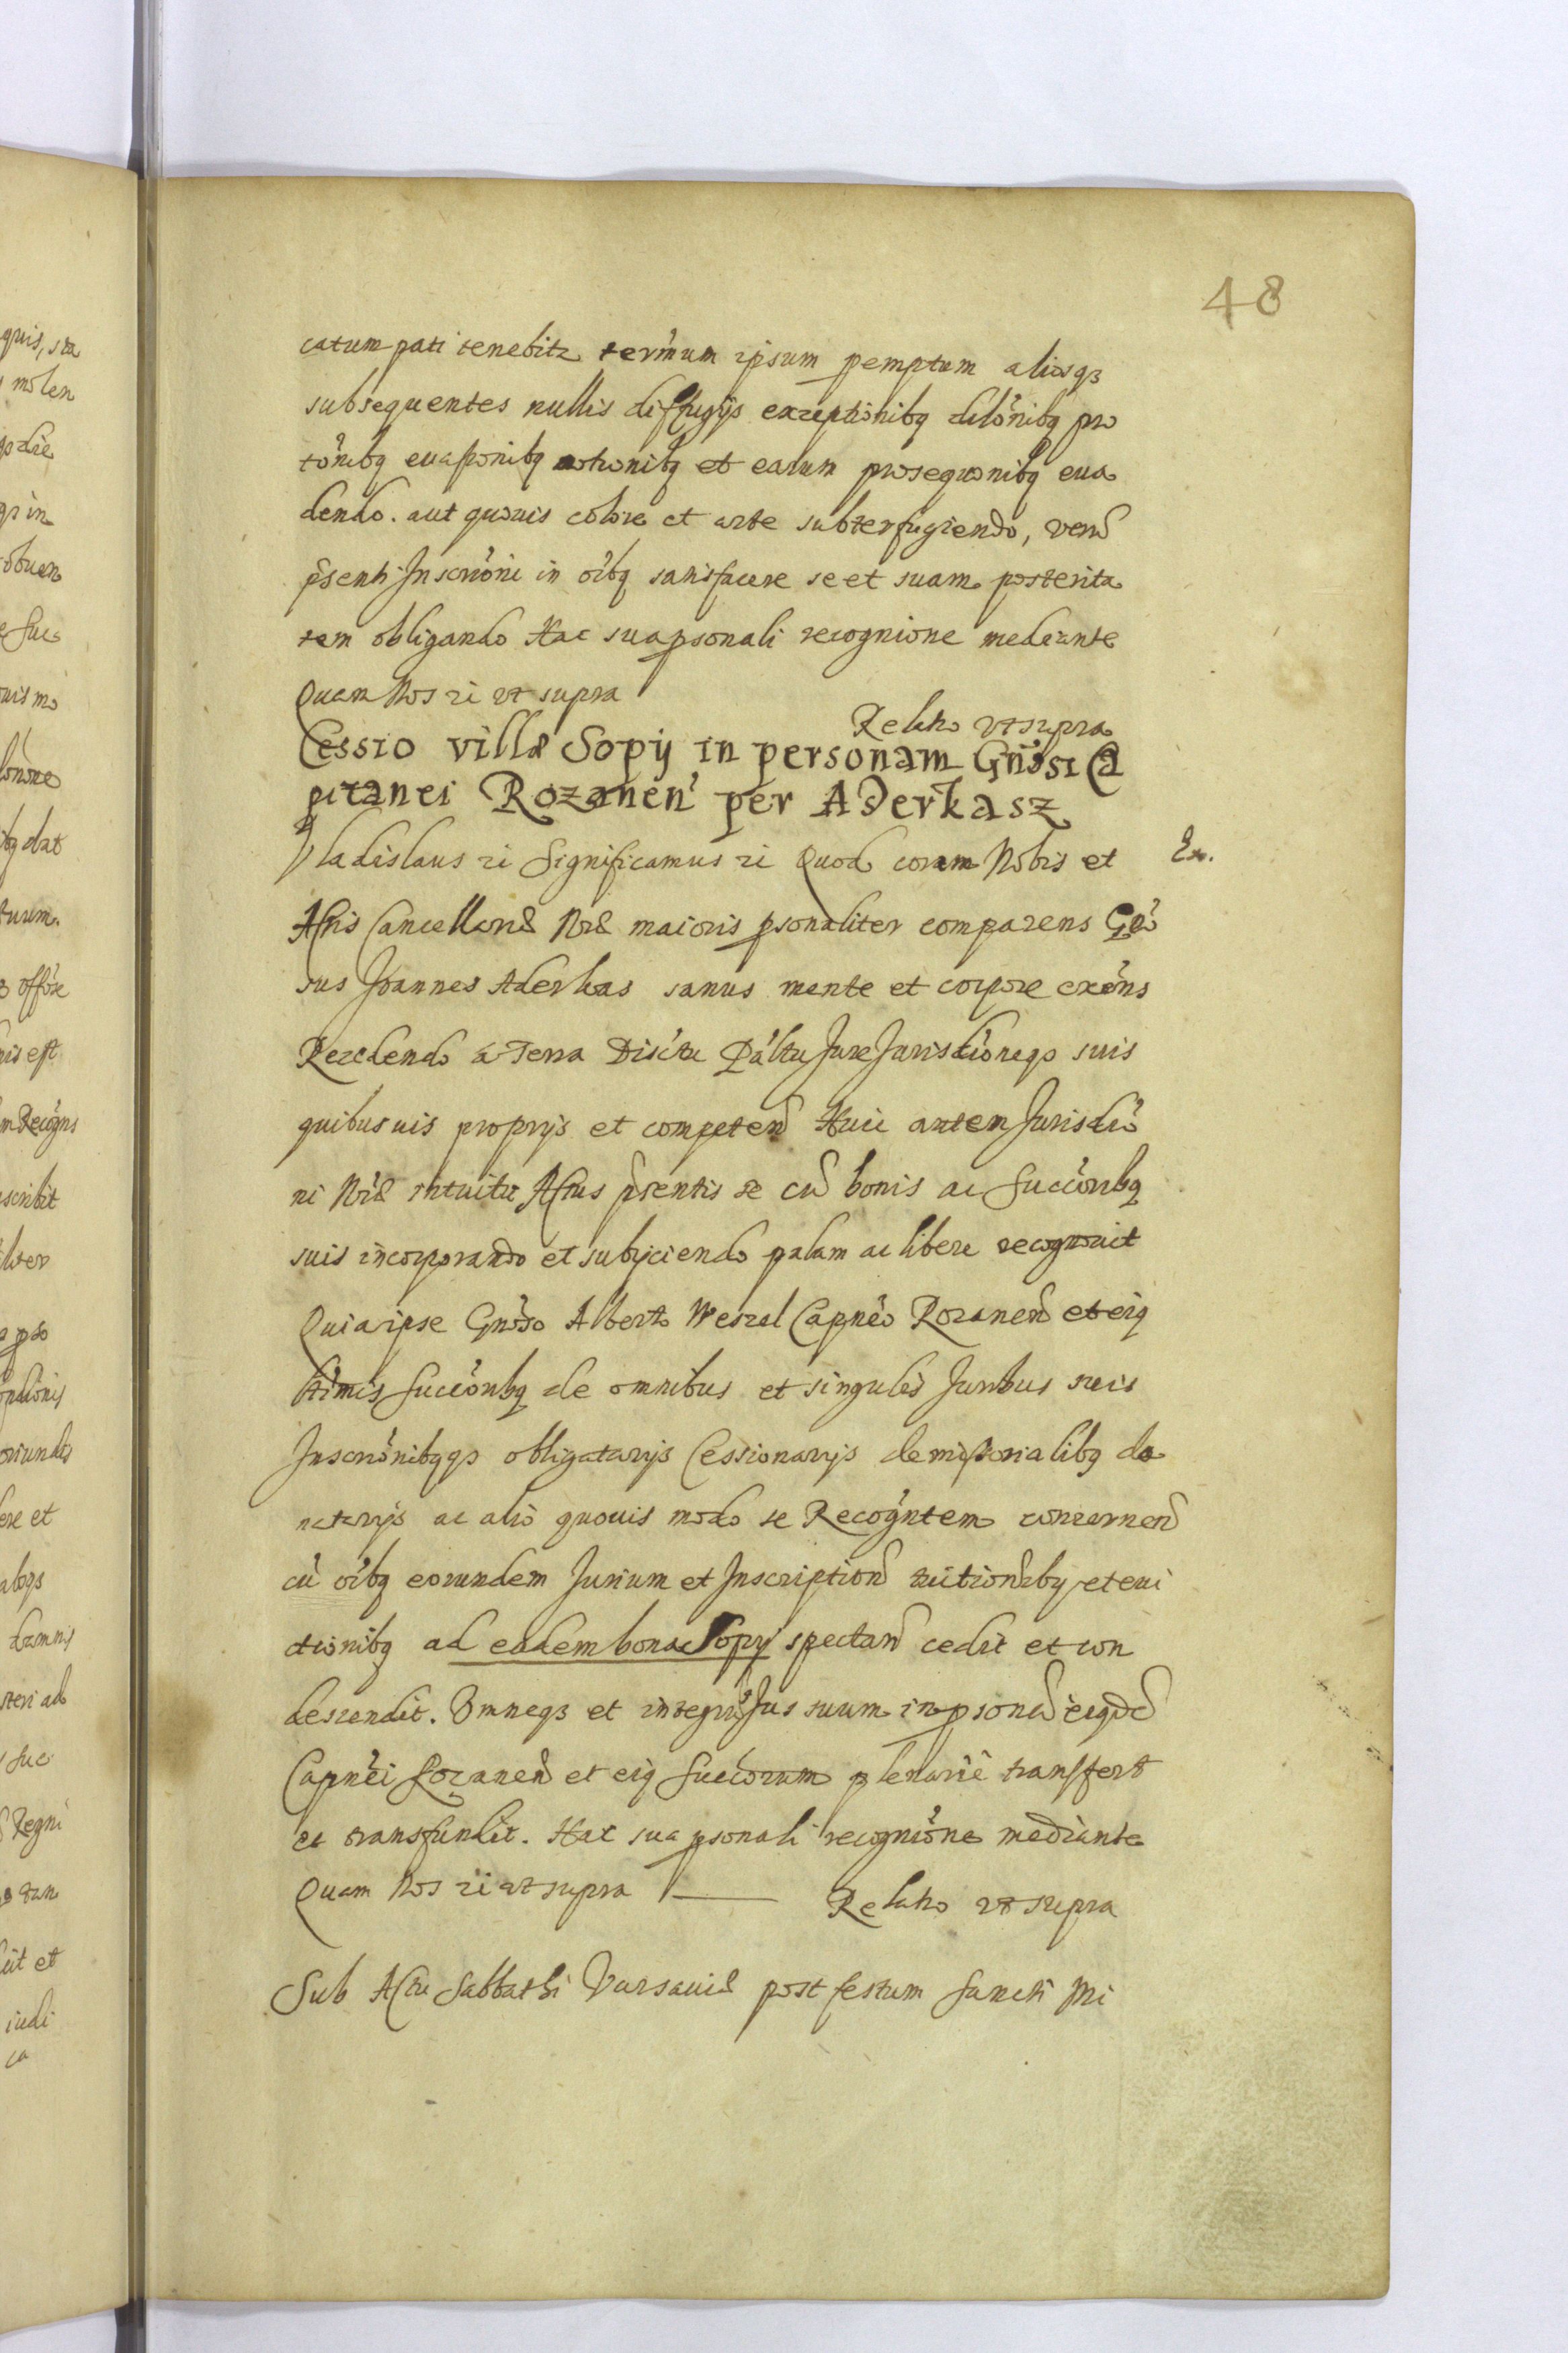 48
catum pati tenebitr termum ipsum pemptum aliosq3
subsequentes nullis diffugijs exceptionibq dilonibq pro
tonibq euasionibq motionibq et earum prosequonibq eua
dendo. aut quouis colore et arte subterfugiendo, verũ
psenti Inscrioni in oibq satisfacere se et suam posterita
tem obligando Hac sua psonali recognione mediante
Quam Nos zi vt supra
Relatio vt supra
Cessio villæ Sopij in personam Gnosi Ca
pitanei Rozanen per Aderkasz
Vladislaus zi Significamus zi Quod coram Nobis et
Ex.
Actis Cancellariæ Nræ maioris psonaliter comparens Gno
sus Joannes Aderkas sanus mente et corpore exens
Recedendo a Terra Disctu Paltu Jure Jurisdioneqз suis
quibusuis proprijs et competen Huic autem Jurisdio
ni Nræ intuitu Actus psentis se cũ bonis ac Succorибq
suis incorporando et subijciendo palam ac libere recognouit
Quia ipse Gnoso Alberto Weszel Capneo Rozanen et eiq
ltimis Succoribq de omnibus et singulis Juribus suis
Inscrionibqqз obligatorijs Cessionarijs demissorialibq do
natorijs ac alio quouis modo se Recogntem concernen
cũ oibq eorundem Jurium et Inscription euictionibq et eui
ctionibq ad eadem bona Sopij spectan cedit et con
descendit. Omneq3 et integrũ Jus suum in psonã eiqdẽ
Capnei Rozanen et eiq Succorum plenarie transfert
et transfundit. Hac sua psonali recognione mediante
Quam Nos zi vt supra
Relatio vt supra
Sub Actu Sabbathi Varsauiæ post festum Sancti Mi